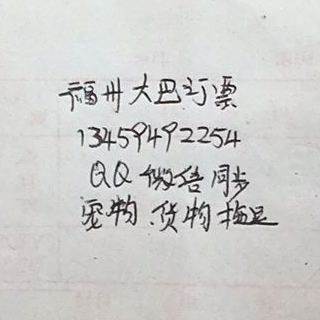 福州大巴订票
13459492254
QQ微信同步
宠物.货物